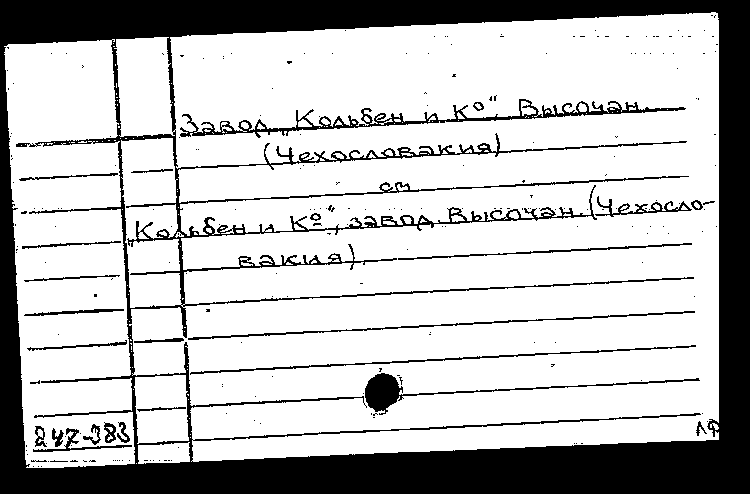 Завод „Кольбен и Ко“, Высочан.
(Чехословакия)
см
„Кольбен и Ко“, завод. Высочан. (Чехосло-
вакия).
247-383
ЛФ